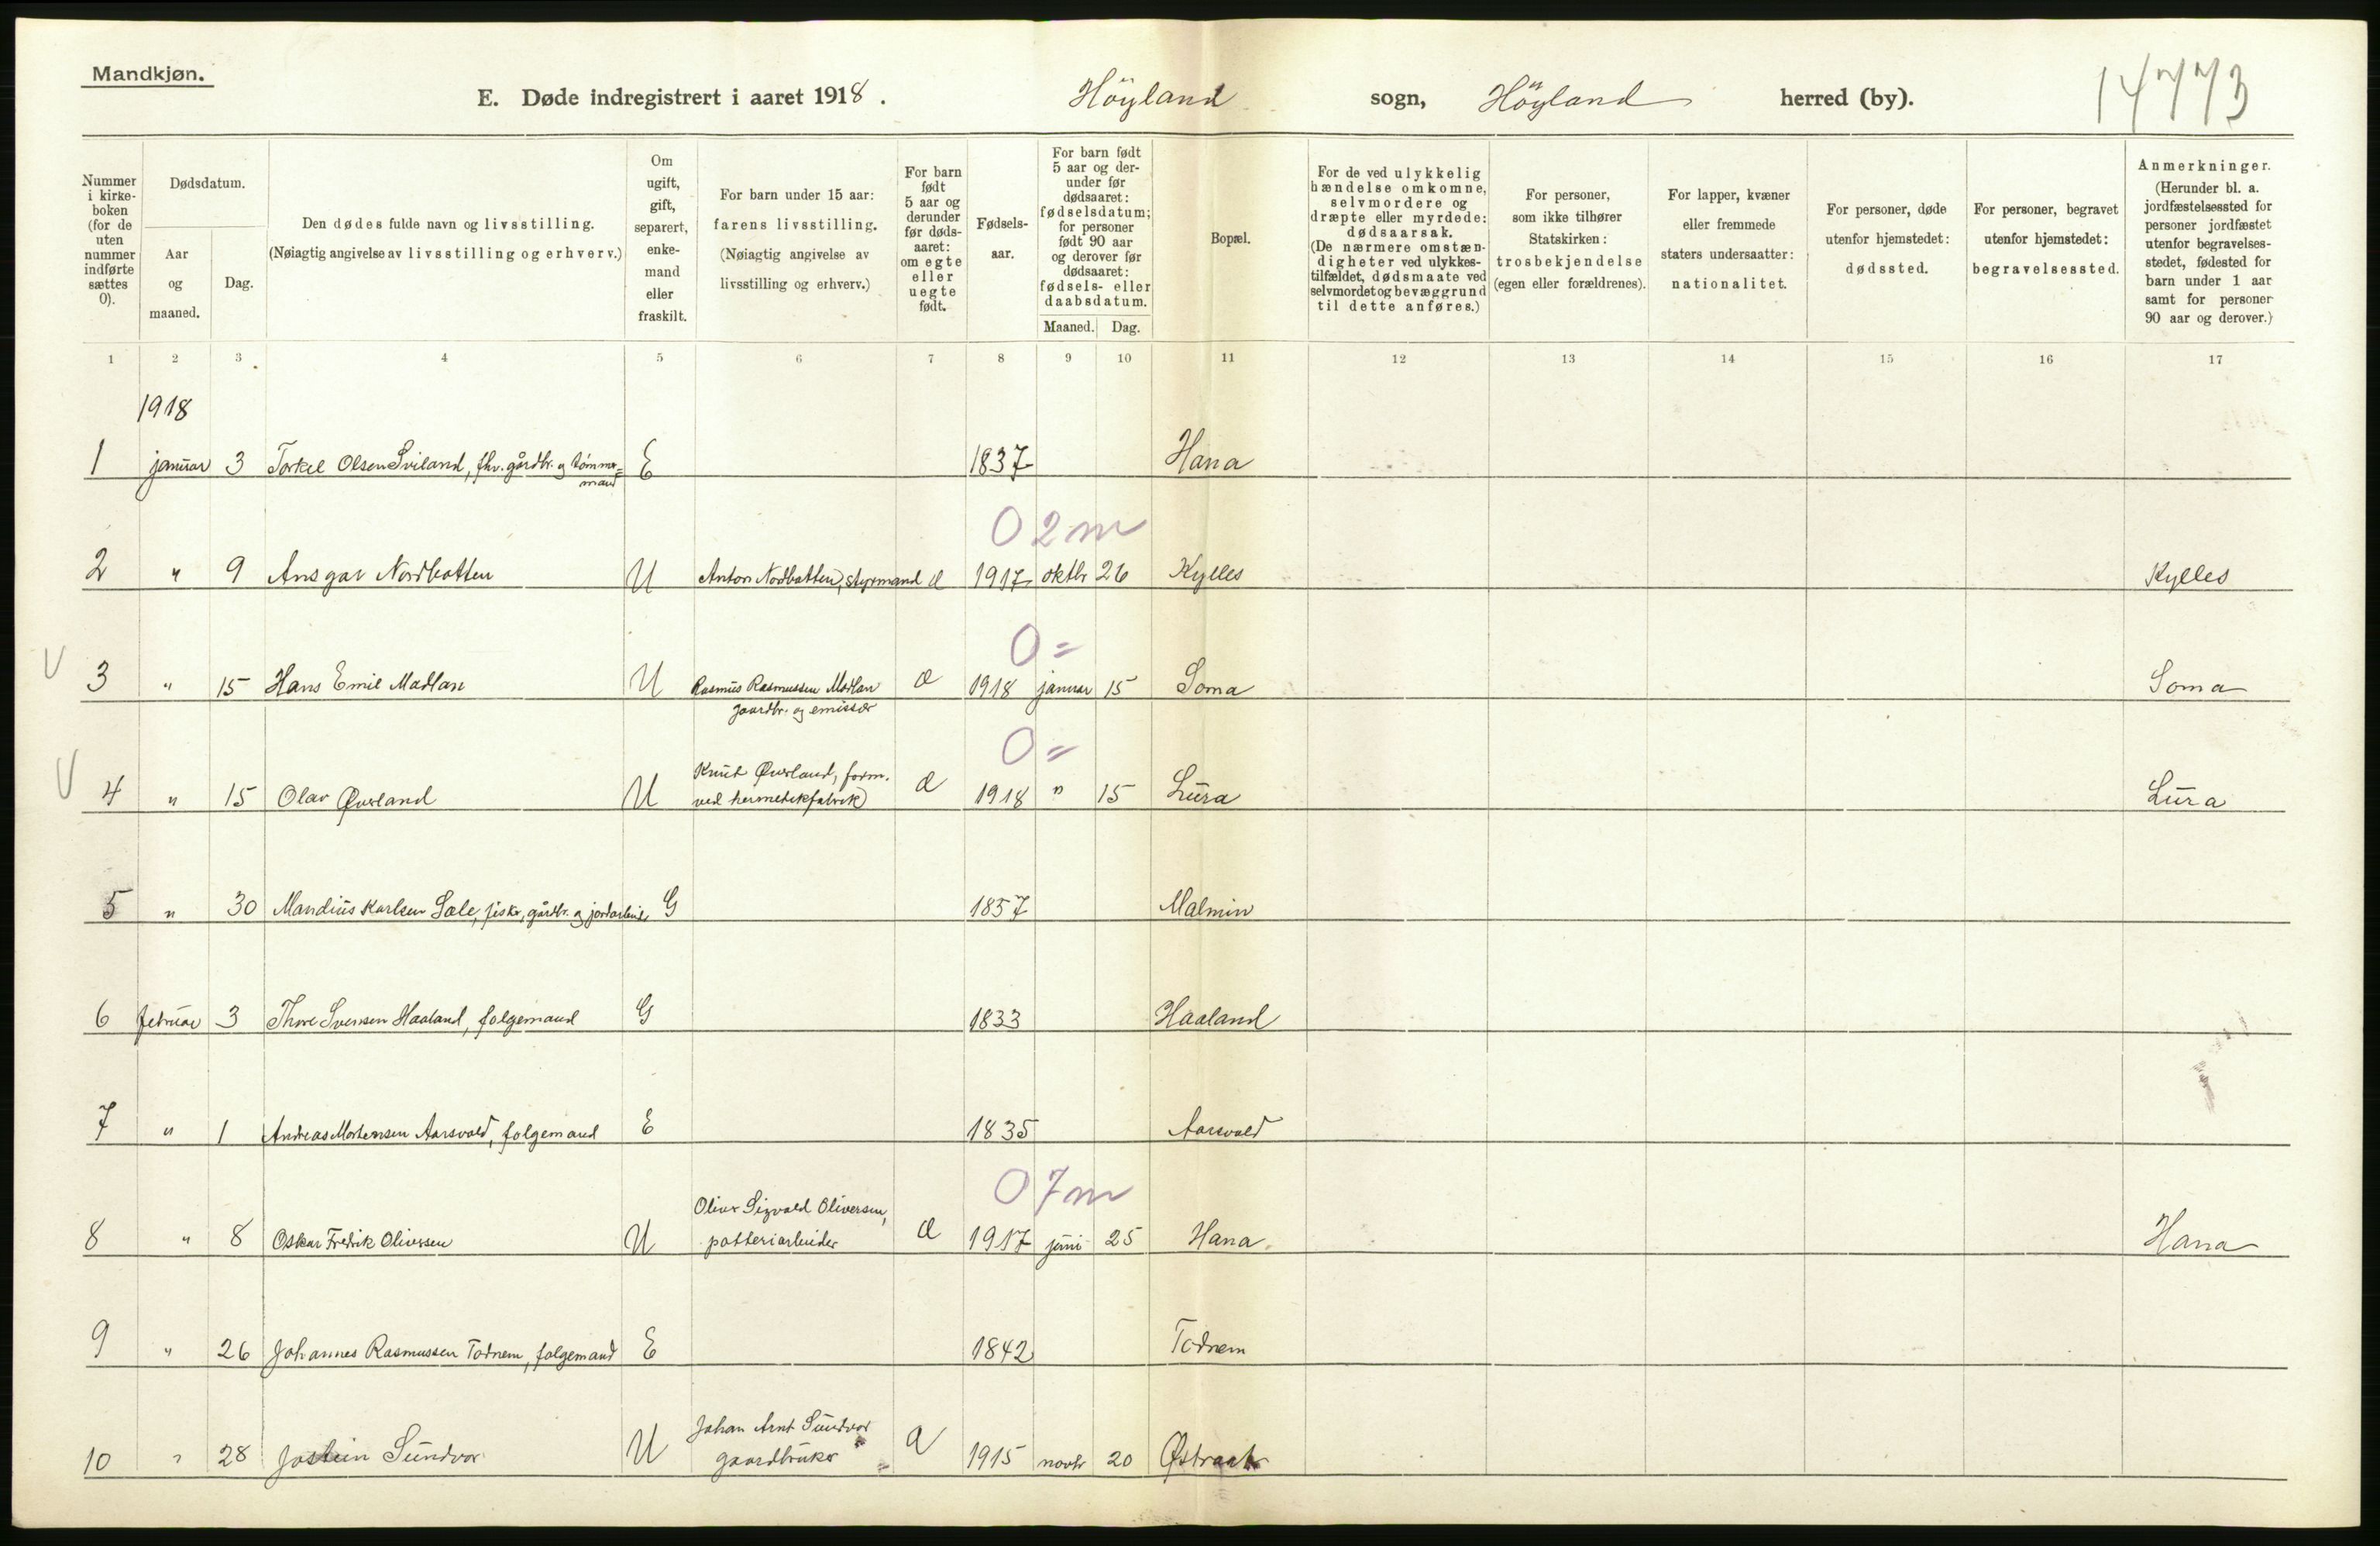 Mandkjøn.
E. Døde indregistrert i aaret 1918. Höyland sogn, Höyland herred (by). 14773
Nummer i kirkeboken (for de uten nummer indførte sættes 0).
Dødsdatum.
Aar og maaned.
Dag.
Den dødes fulde navn og livsstilling.
(Nøiagtig angivelse av livsstilling og erhverv.)
Om ugift, gift, separert, enkemand eller fraskilt.
For barn under 15 aar: farens livsstilling.
(Nøiagtig angivelse av livsstilling og erhverv.)
For barn født 5 aar og derunder før dødsaaret: om egte eller uegte født.
Fødselsaar.
For barn født 5 aar og derunder før dødsaaret: fødselsdatum; for personer født 90 aar og derover før dødsaaret: fødsels- eller daabsdatum.
Maaned. Dag.
Bopæl.
For de ved ulykkelig hændelse omkomne, selvmordere og dræpte eller myrdede: dødsaarsak.
(De nærmere omstændigheter ved ulykkestilfældet, dødsmaate ved selvmordet og bevæggrund til dette anføres.)
For personer, som ikke tilhører Statskirken: trosbekjendelse (egen eller forældrenes).
For lapper, kvæner eller fremmede staters undersaatter: nationalitet.
For personer, døde utenfor hjemstedet: dødssted.
For personer, begravet utenfor hjemstedet: begravelsessted.
Anmerkninger.
(Herunder bl. a. jordfæstelsessted for personer jordfæstet utenfor begravelsesstedet, fødested for barn under 1 aar samt for personer 90 aar og derover.)
1 2 3 4 5 6 7 8 9 10 11 12 13 14 15 16 17
1918
1 januar 3 Torkel Olsen Sviland, fhv. gårdbr. og tømmermand E 1837 Hana
0 2 m
2 " 9 Ansgar Nordbotten U Anton Nordbotten, styrmand 1917 oktbr 26 Kylles Kylles
0 =
V 3 " 15 Hans Emil Madlan U Rasmus Rasmussen Madlan 1918 januar 15 Soma Soma
gaardbr. og emissær
0 =
V 4 " 15 Olav Øvsland U Knut Øvsland, form. 1918 " 15 Lura Lura
ved hermetikfabrik
5 " 30 Mandius Karlsen Sæle, fisker, gårdbr. og jordarbeid. G 1857 Malmin
6 februar 3 Thore Svensen Haaland, folgemand G 1833 Haaland
7 " 1 Andreas Mortensen Aarsvold, folgemand E 1835 Aarsvold
0 7 m
8 " 8 Oskar Fredrik Oliversen U Oliver Sigvald Oliversen, 1917 juni 25 Hana Hana
potteriarbeider
9 " 26 Johannes Rasmussen Todnem, folgemand E 1842 Todnem
10 " 28 Jostein Sundvor U Johan Arnt Sundvor 1915 novbr 20 Østraat
gaardbruker